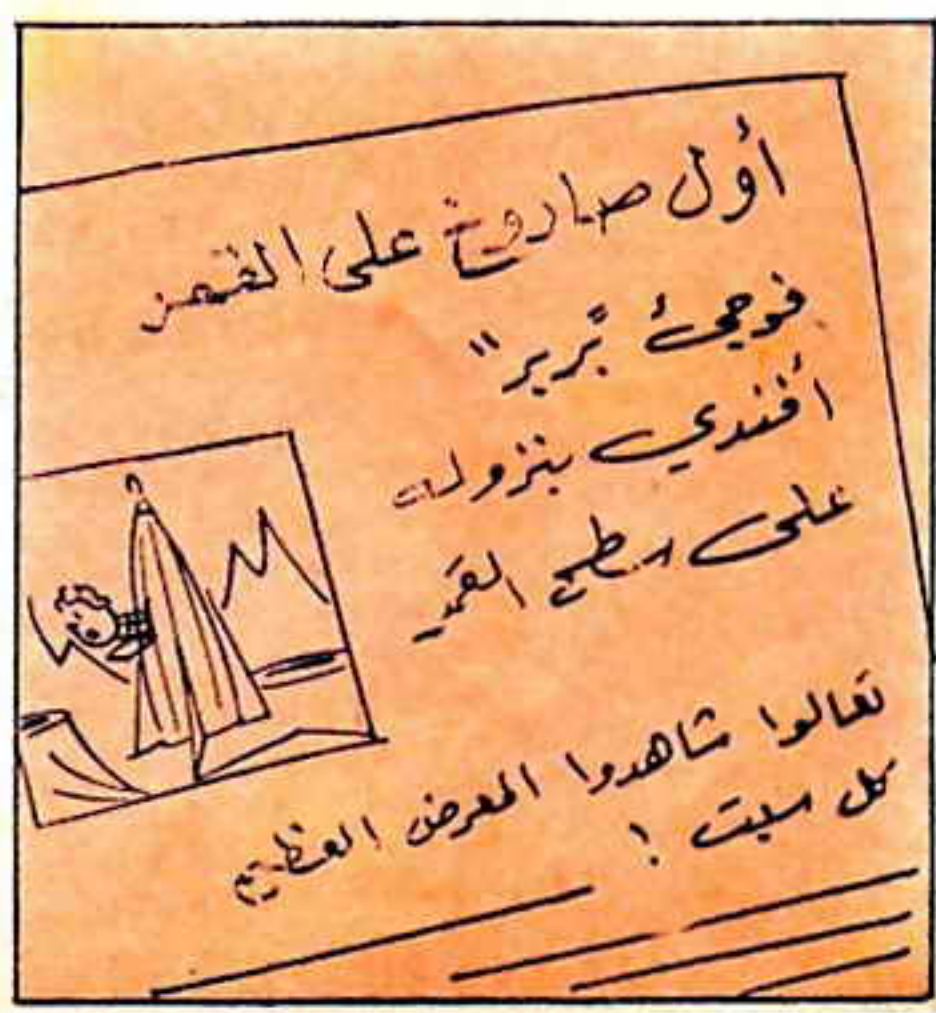 أول صاروخ على القمر
فوجئ بَّرير"
أفندي بنزوله
على سطح القمر
تعالوا شاهدوا المعرض العظيم
كل سبت !